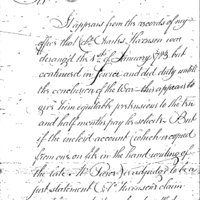 Sir
It appears from the records of my
office that Col. Charles Harrison was
deranged the 1st of January 1783 but
continued in service and did duty until
the conclusion of the War — this appears to
give him equitable pretensions to the
and half months pay he solicits. But
if the inclosed account (which I recd
from our on file in the hand writing of
the late Mr. ) be a
just statement Col. Harrison's claim